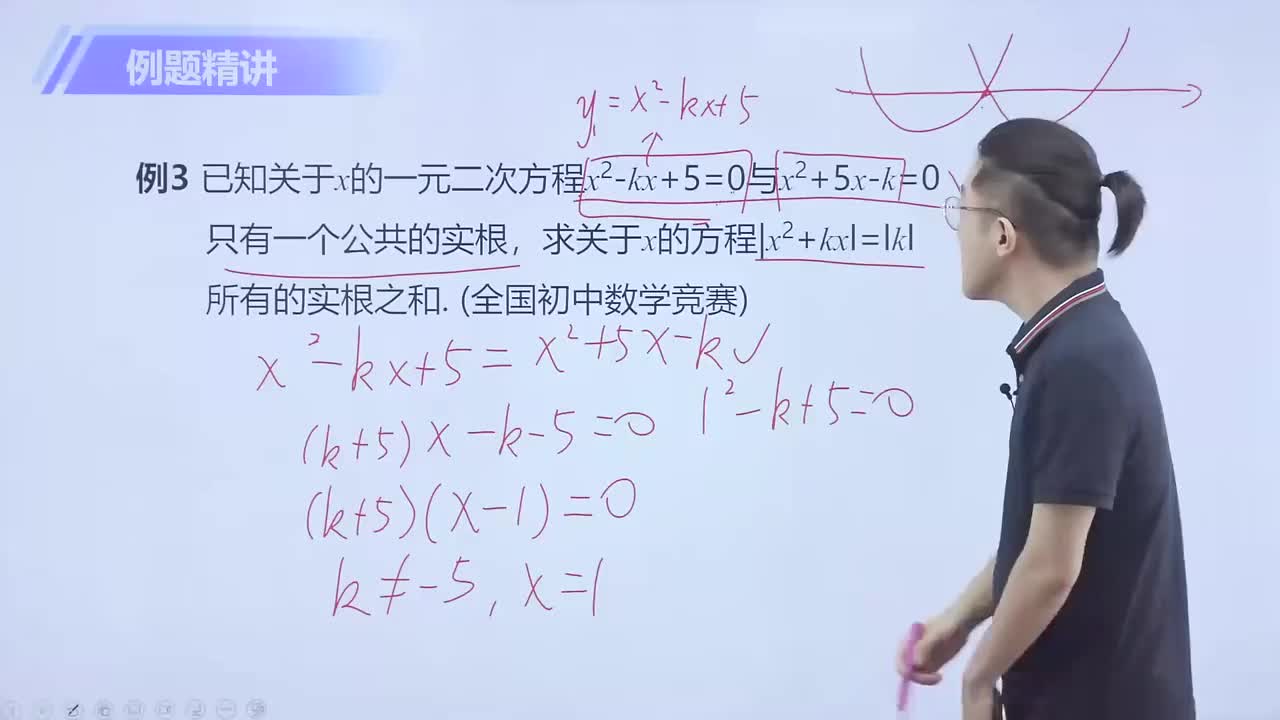 例题精讲
y=x²-kx+5
例3 已知关于x的一元二次方程x²-kx+5=0与x²+5x-k=0
只有一个公共的实根，求关于x的方程|x²+kx|=|k|
所有的实根之和. (全国初中数学竞赛)
x²-kx+5=x²+5x-k✓
(k+5)x-k-5=0 1²-k+5=0
(k+5)(x-1)=0
k≠-5, x=1